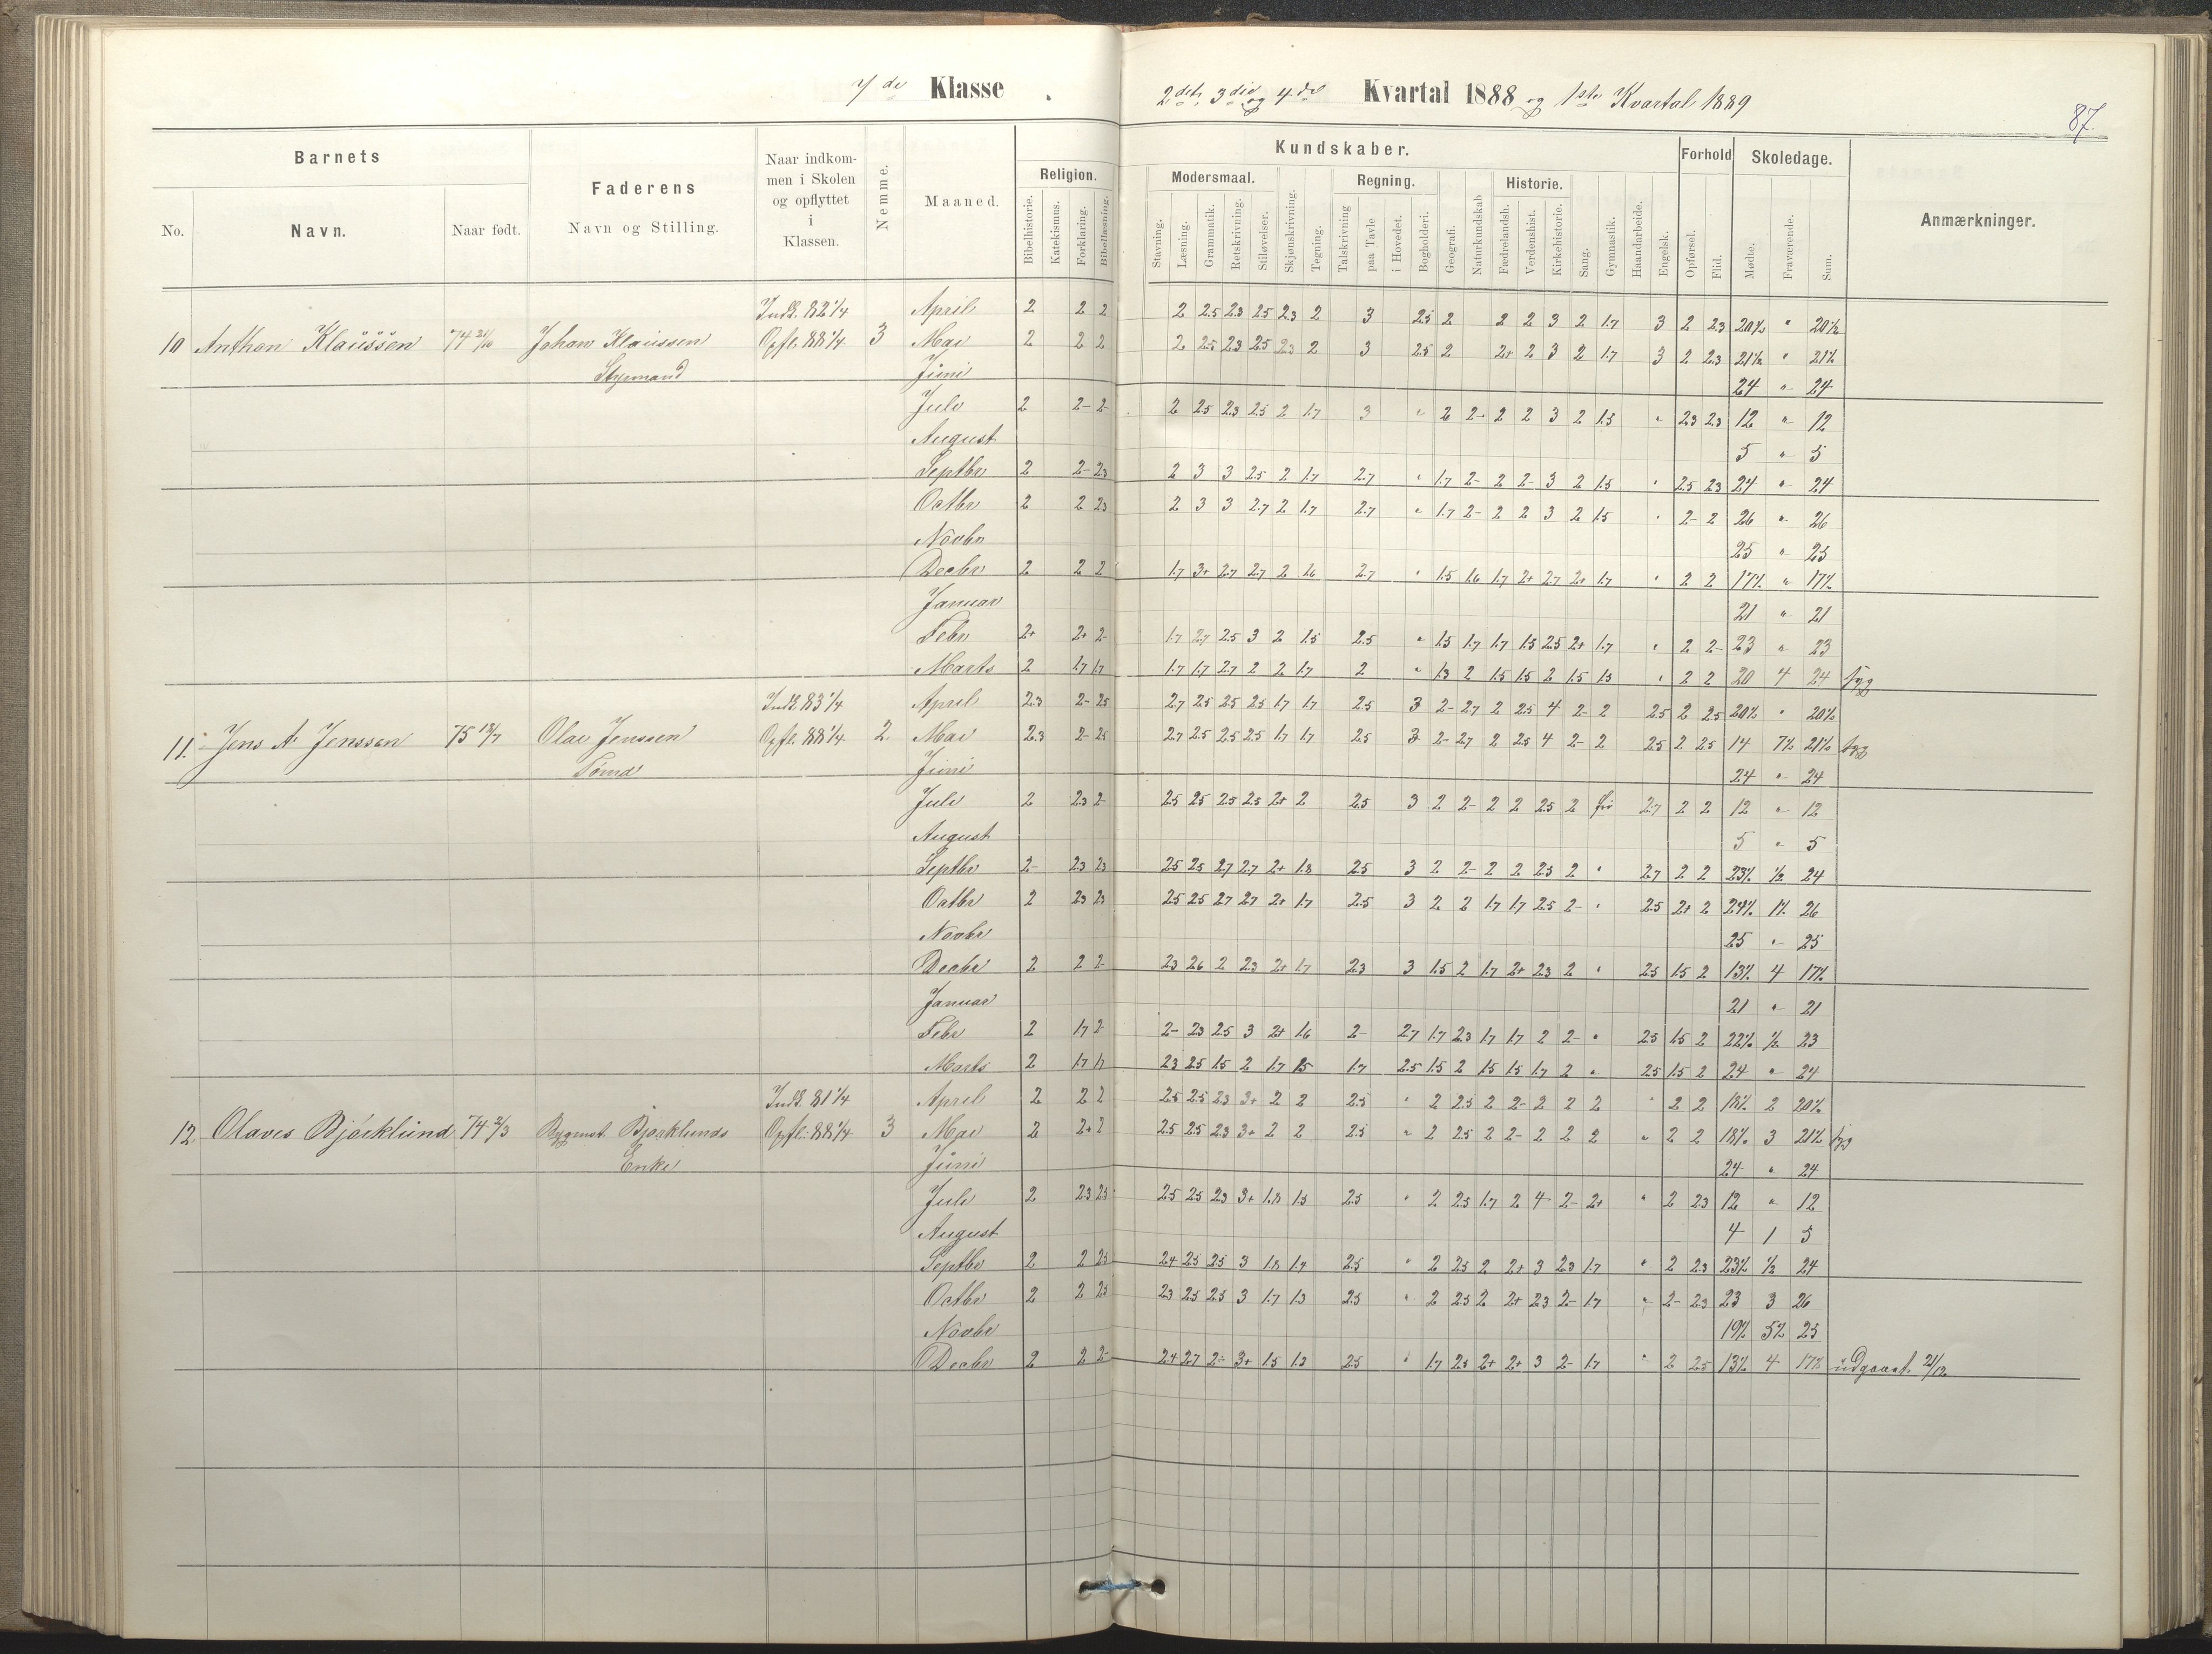 7de Klasse.
2det, 3die og 4de Kvartal 1888 og 1ste Kvartal 1889
87.
Barnets
No.
Navn.
Naar født.
Faderens
Navn og Stilling.
Naar indkom-
men i Skolen
og opflyttet
i
Klassen.
Nemme.
Maaned.
Kundskaber.
Religion.
Bibelhistorie.
Katekismus.
Forklaring.
Bibellæsning.
Modersmaal.
Stavning.
Læsning.
Grammatik.
Retskrivning.
Stiløvelser.
Skjønskrivning.
Tegning.
Regning.
Talskrivning
paa Tavle
i Hovedet.
Bogholderi.
Geografi.
Naturkundskab
Historie.
Fædrelandsh.
Verdenshist.
Kirkehistorie.
Sang.
Gymnastik.
Haandarbeide.
Engelsk.
Forhold
Opførsel.
Flid.
Skoledage.
Møde.
Fraværende.
Sum.
Anmærkninger.
Indk. 82 1/4 April 2 2 2 2 2.5 2.3 2.5 2.3 2 3 2.5 2 2 2 3 2 1.7 3 2 2.3 20½ " 20½
10 Anthon Klaussen Johan Klaussen Opfl. 88 1/4 3 Mai 2 2 2 2 2.5 2.3 2.5 2.3 2 3 2.5 2 2+ 2 3 2 1.7 3 2 2.3 21½ " 21½
Styrmand Juni 24 " 24
Juli 2 2- 2- 2 2.5 2.3 2.5 2 1.7 3 " 2 2- 2 2 3 2 1.5 " 2.3 2.3 12 " 12
August 5 " 5
Septbr 2 2- 2.3 2 3 3 2.5 2 1.7 2.7 " 1.7 2- 2 2- 3 2 1.5 " 2.5 2.3 24 " 24
Octbr 2 2 2.3 2 3 3 2.7 2 1.7 2.7 " 1.7 2- 2 2 3 2 1.5 " 2- 2 26 " 26
Novbr 25 " 25
Decbr 2 2 2 1.7 3+ 2.7 2.7 2 1.6 2.7 " 1.5 1.6 1.7 2+ 2.7 2+ 1.7 " 2 2 17½ " 17½
Januar 21 " 21
Febr 2+ 2+ 2- 1.7 2.7 2.5 3 2 1.5 2.5 " 1.5 1.7 1.7 1.5 2.5 2+ 1.7 " 2 2- 23 " 23
Marts 2 1.7 1.7 1.7 1.7 2.7 2 2 1.7 2 " 1.3 2 1.5 1.5 2 1.5 1.5 " 2 2 20 4 24 syg
Indk 83 1/4 April 2.3 2- 2.5 2.7 2.5 2.5 2.5 1.7 1.7 2.5 3 2- 2.7 2 2.5 4 2- 2 2.5 2 2.5 20½ " 20½
11. Jens A Jenssen 75 13/7 Olav Jenssen Opfl. 88 1/4 2. Mai 2.3 2- 2.5 2.7 2.5 2.5 2.5 1.7 1.7 2.5 3 2- 2.7 2 2.5 4 2- 2 2.5 2 2.5 14 7½ 21½ syg
Tømd Juni 24 " 24
Juli 2 2.3 2- 2.5 2.5 2.5 2.5 2+ 2 2.5 3 2 2- 2 2 2.5 2 fri 2.7 2 2 12 " 12
August 5 " 5
Septbr 2- 2.3 2.3 2.5 2.5 2.7 2.7 2+ 1.8 2.5 3 2 2- 2 2 2.3 2 " 2.7 2 2 23½ ½ 24
Octbr 2 2.3 2.3 2.5 2.5 2.7 2.7 2+ 1.7 2.5 3 2 2 1.7 1.7 2.5 2- " 2.5 2+ 2 24½ 1½ 26
Novbr 25 " 25
Decbr 2 2 2- 2.3 2.6 2 2.3 2+ 1.7 2.3 3 1.5 2 1.7 2+ 2.3 2 " 2.5 1.5 2 13½ 4 17½
Januar 21 " 21
Febr 2 1.7 2- 2- 2.3 2.5 3 2+ 1.6 2- 2.7 1.7 2.3 1.7 1.7 2 2- " 2.5 1.5 2 22½ ½ 23
Marts 2 1.7 1.7 2.3 2.5 1.5 2 1.7 1.5 1.7 2.5 1.5 2 1.5 1.5 1.7 2 " 2.5 1.5 2 24 " 24
Indk. 81 1/4 April 2 2 2 2.5 2.5 2.3 3+ 2 2 2.5 " 2 2.5 2 2- 2 2 2 " 2 2 18½ 2 20½
12. Olaves Bjørklund 74 2/3 Bygmst. Bjørklunds Opfl. 88 1/4 3 Mai 2 2+ 2 2.5 2.5 2.3 3+ 2 2 2.5 " 2 2.5 2 2- 2 2 2 " 2 2 18½ 3 21½ syg
Enke Juni 24 " 24
Juli 2 2.3 2.5 2.5 2.5 2.3 3+ 1.8 1.5 2.5 " 2 2.5 1.7 2 4 2- 2+ " 2 2.3 12 " 12
August 4 1 5
Septbr 2 2 2.5 2.4 2.5 2.5 3 1.8 1.4 2.5 " 2 2.5 2 2+ 3 2.3 1.7 " 2 2.3 23½ ½ 24
Octbr 2 2 2.5 2.3 2.5 2.5 3 1.7 1.3 2.5 " 2 2.5 2 2+ 2.3 2- 1.7 " 2- 2.3 23 3 26
Novbr 19½ 5½ 25
Decbr 2 2 2- 2.4 2.7 2- 3+ 1.5 1.3 2.5 " 1.7 2.5 2+ 2+ 3 2- 1.7 " 2 2.5 13½ 4 17½ udgaaet 21/12